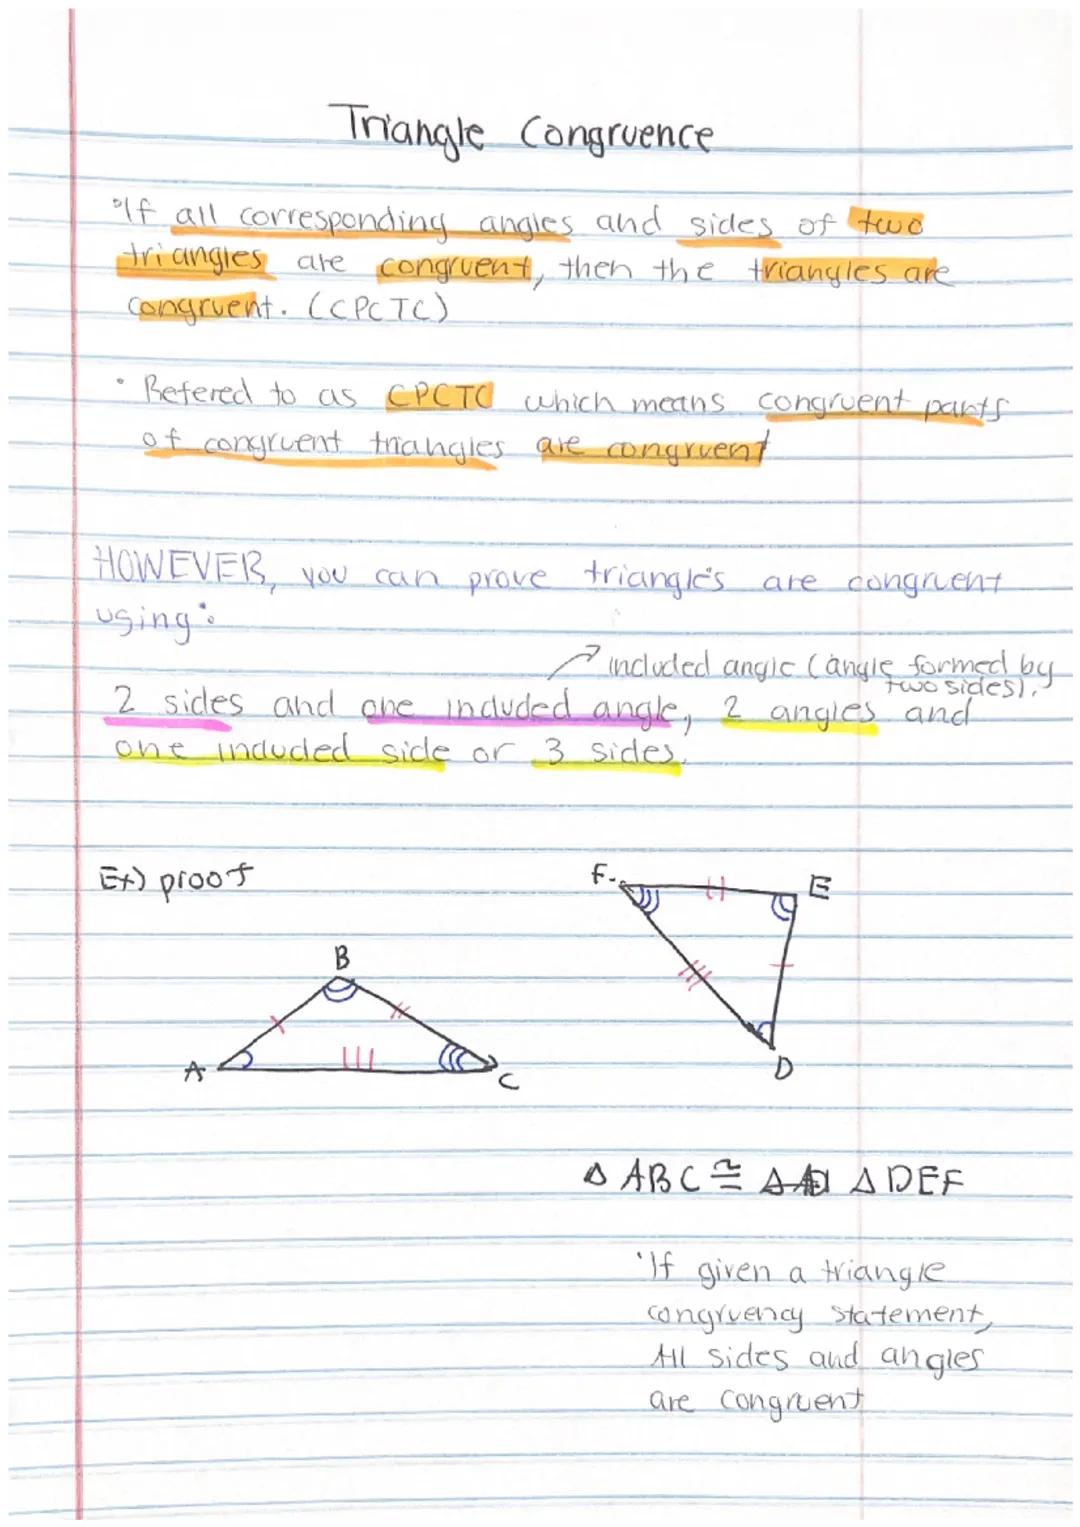 Triangle Congruence
•If all corresponding angles and sides of two
triangles are congruent, then the triangles are
congruent. (CPCTC)
• Refered to as CPCTC which means congruent parts
of congruent triangles are congruent
HOWEVER, you can prove triangle's are congruent
using:
↗ included angle (angle formed by
two sides).
2 sides and one included angle, 2 angles and
one included side or 3 sides.
Ex) proof
F E
B
A C
D
△ ABC ≅ △DEF
•If given a triangle
congruency statement,
All sides and angles
are congruent